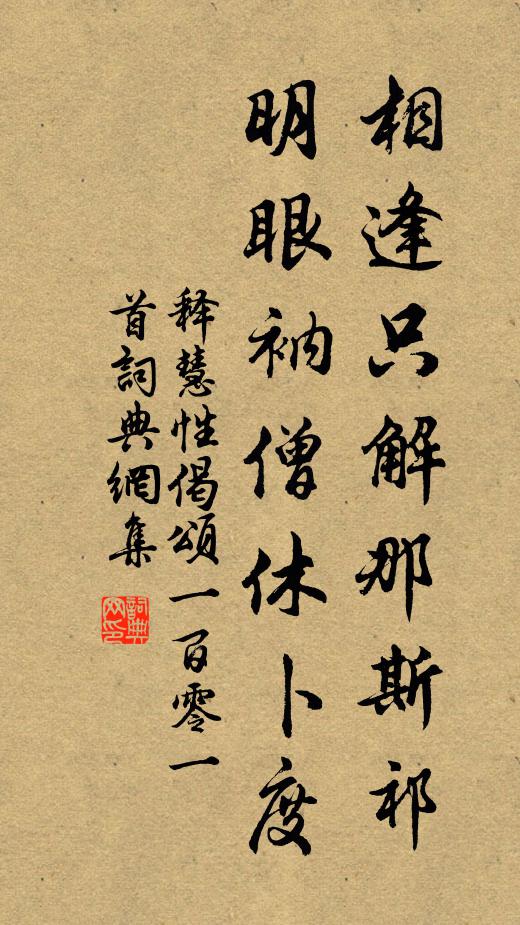 相逢只解那斯祁
明眼衲僧休卜度
释慧性偈頌一百零一
首詞典網集
詞典网印